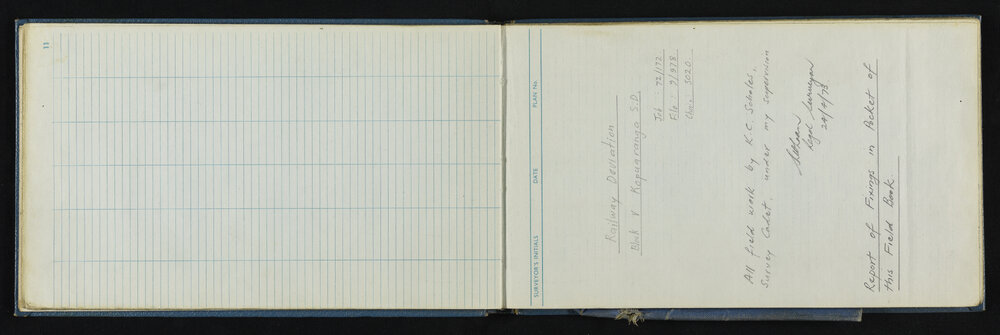 11
SURVEYOR'S INITIALS DATE PLAN No.
Railway Deviation
Block V Kopuaranga S.D.
Job : 72/172
File : 9/978
Chn. : 5020
All field work by K.C. Scholes,
Survey Cadet, under my supervision
Regd. Surveyor
24/4/73
Report of Fixings in Pocket of
this Field Book.